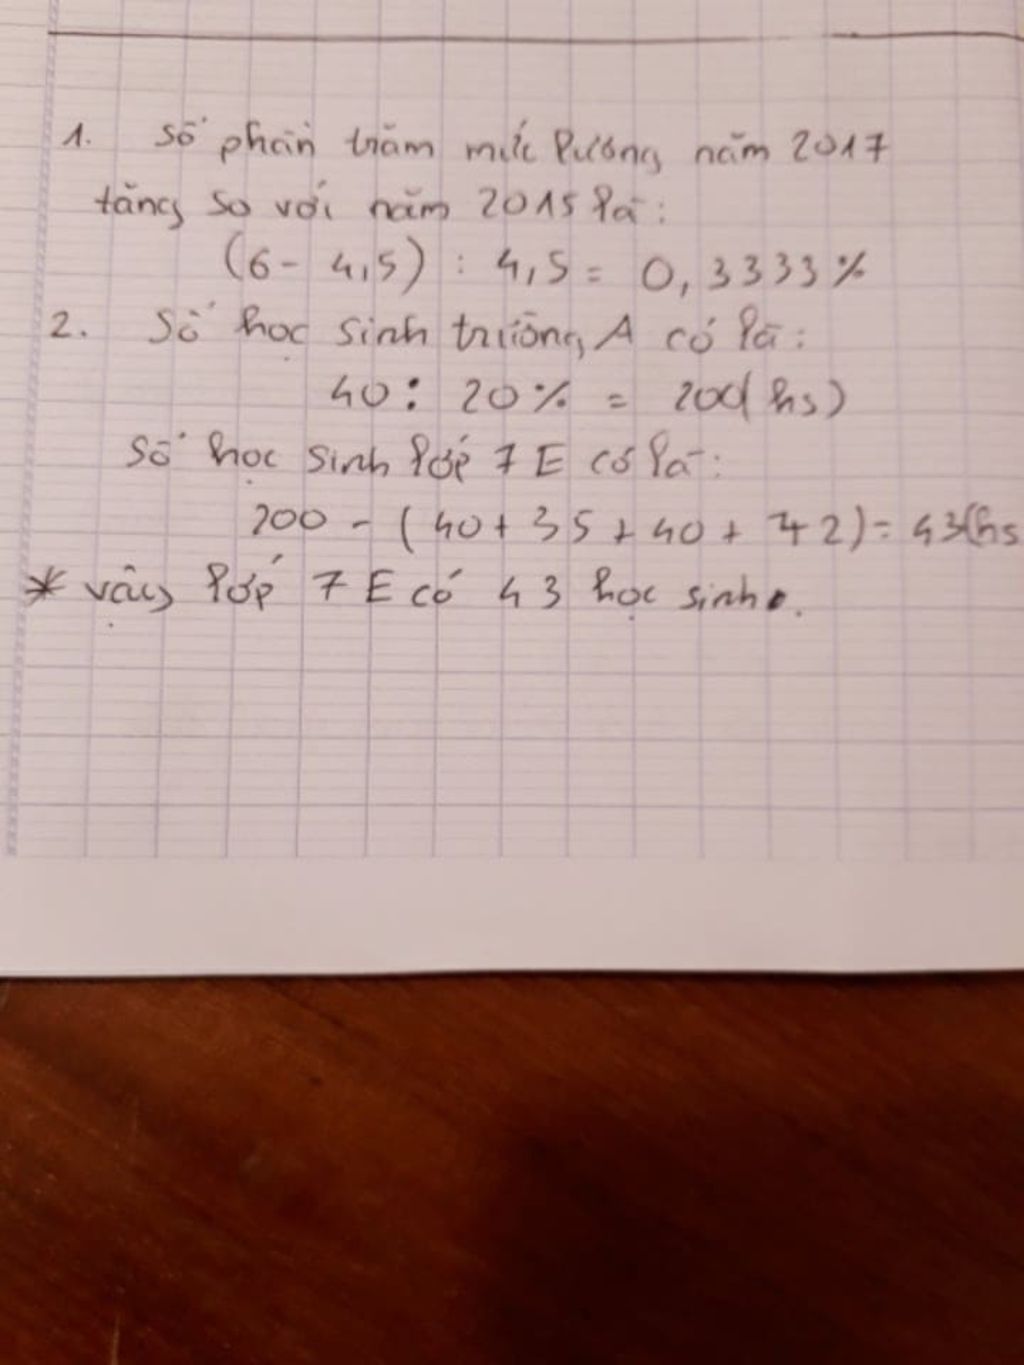 1. Số phần trăm mức lương năm 2017
tăng so với năm 2015 là:
(6 - 4,5) : 4,5 = 0,3333%
2. Số học sinh trường A có là:
40 : 20% = 200(hs)
Số học sinh lớp 7E có là:
200 - (40 + 35 + 40 + 42) = 43(hs
* vậy lớp 7E có 43 học sinh.